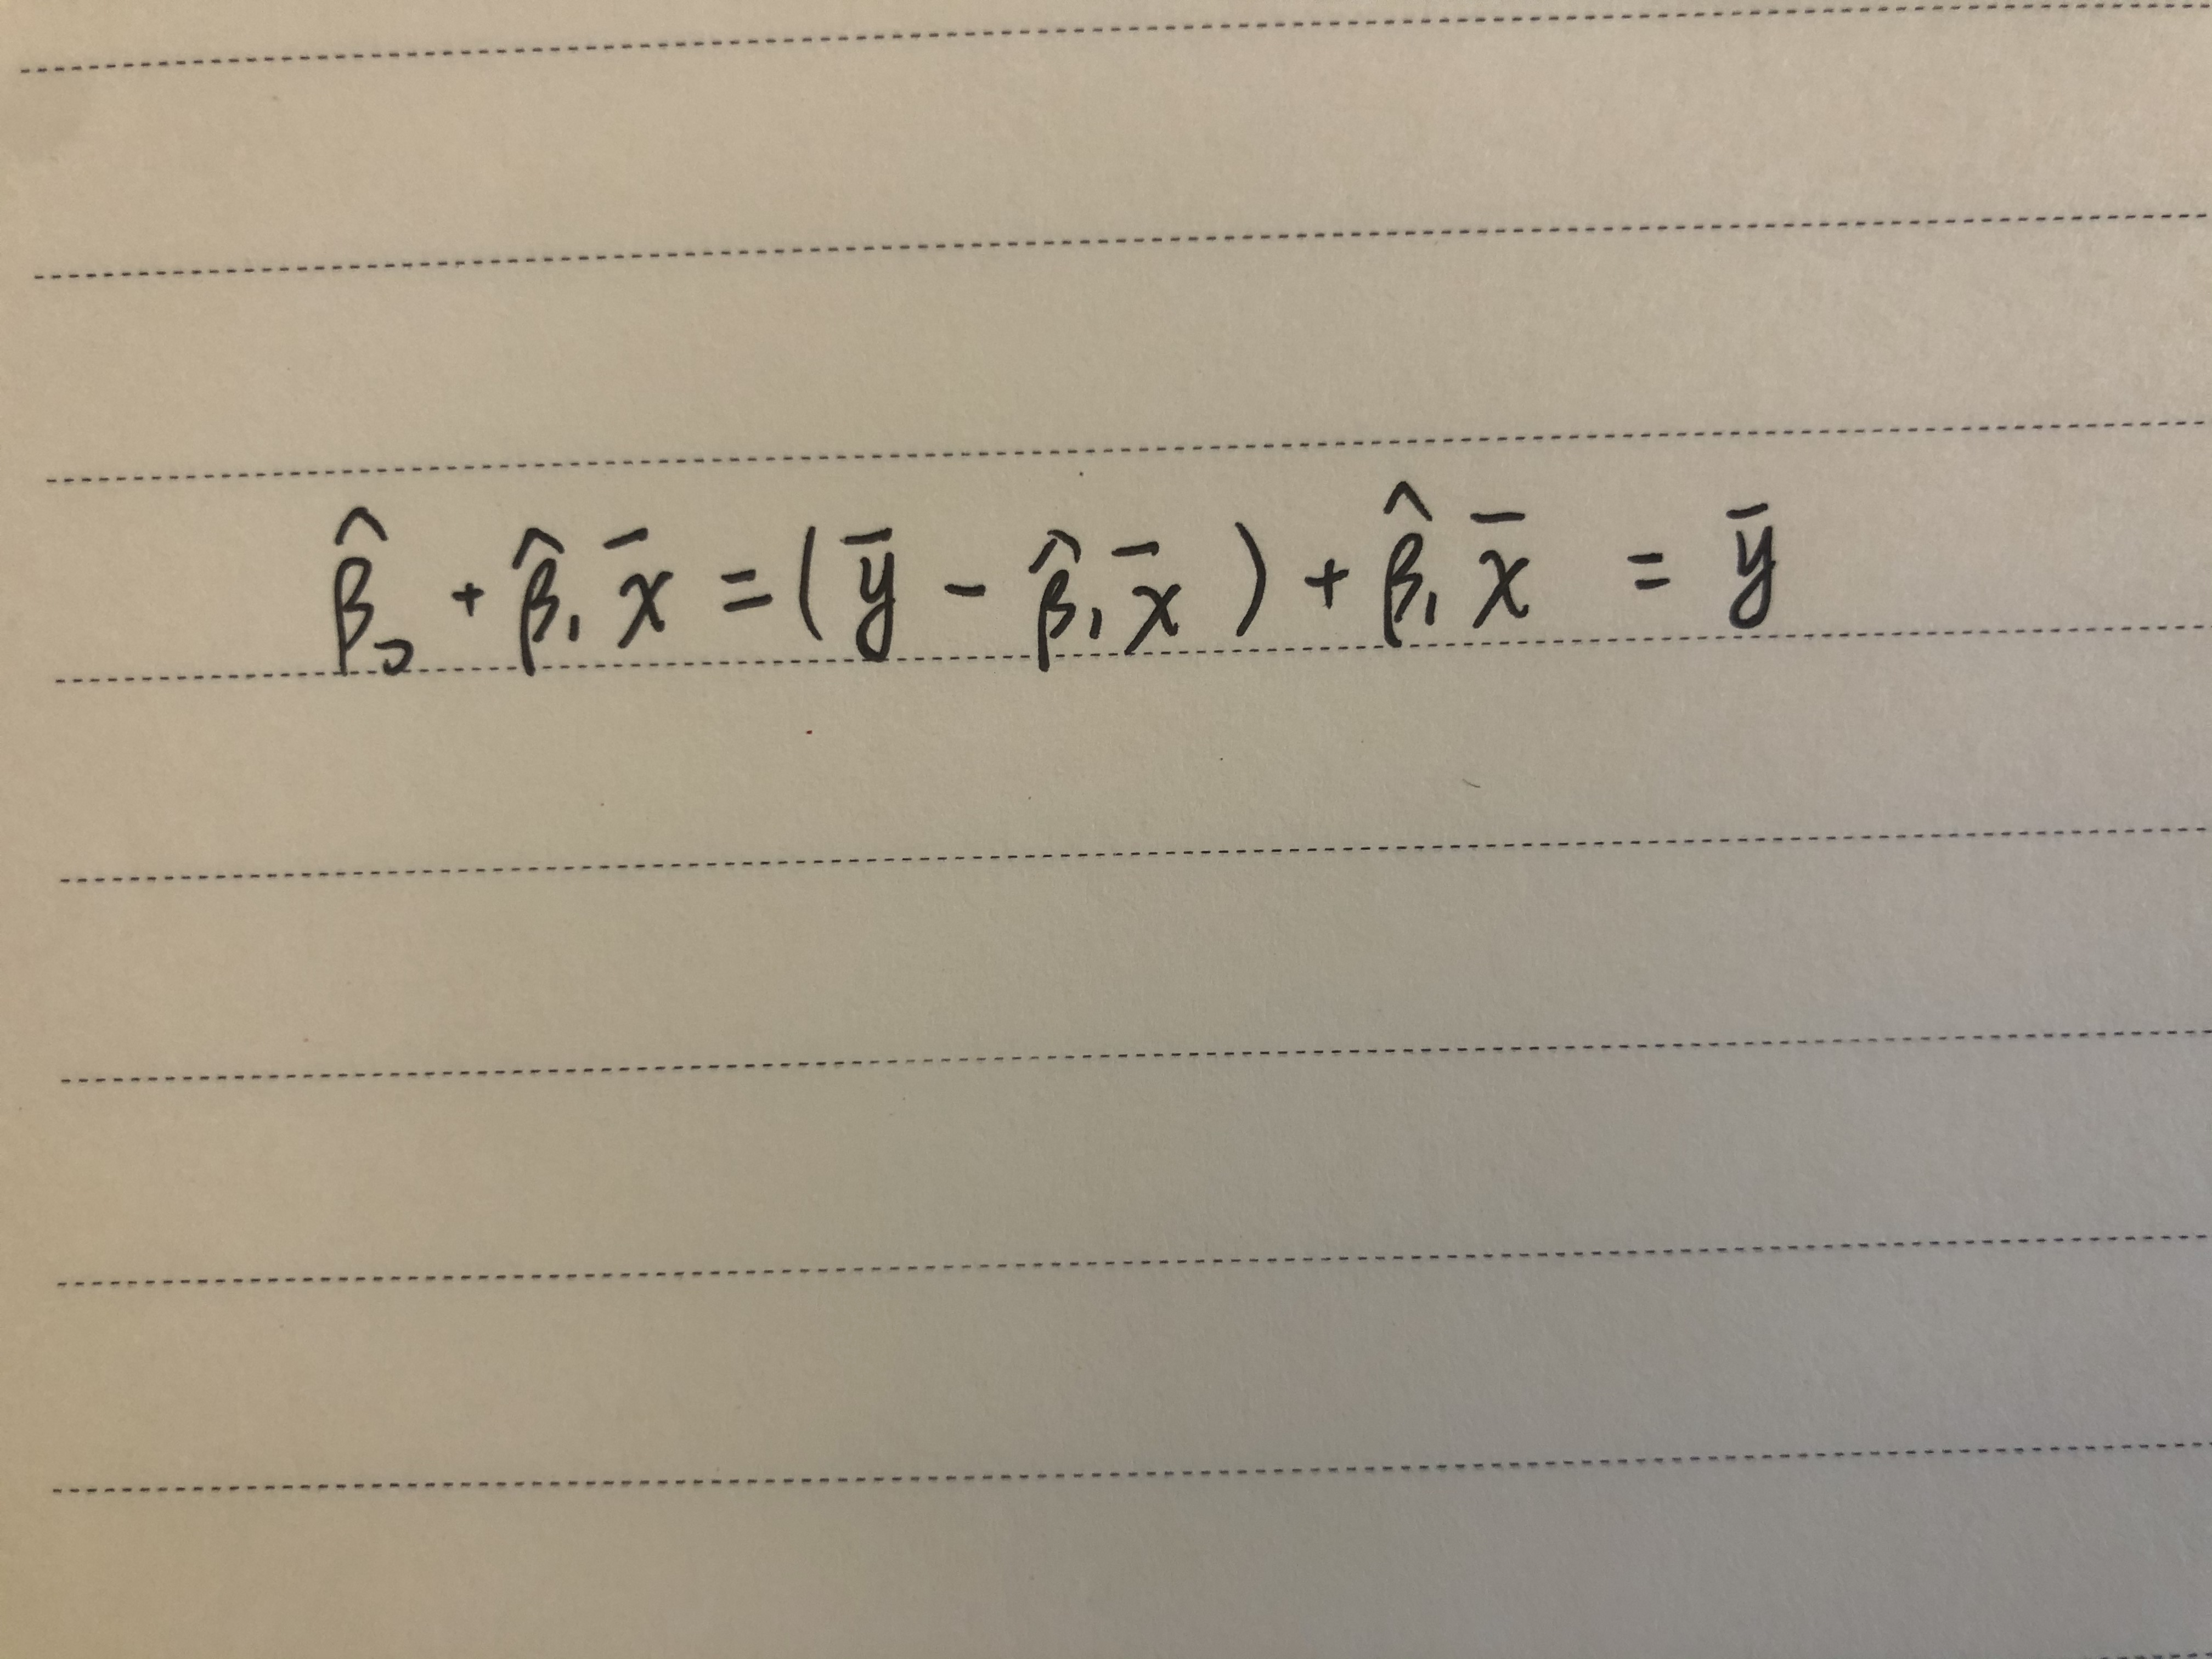 β̂₀ + β̂₁ x̄ = (ȳ − β̂₁ x̄) + β̂₁ x̄ = ȳ